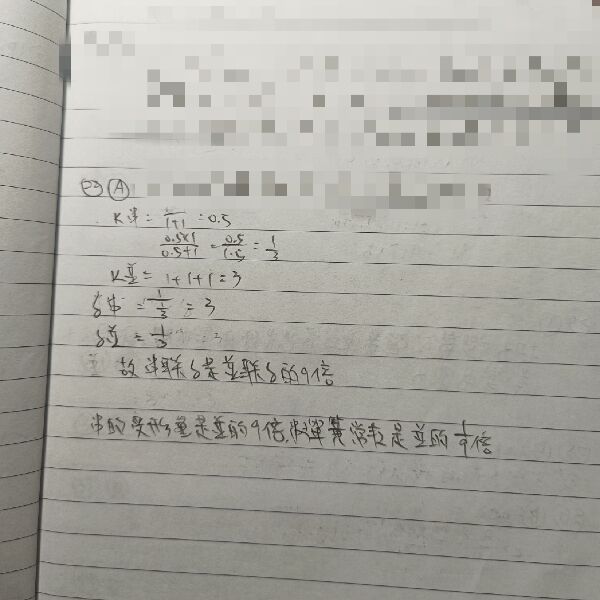 (3) Ⓐ
K串 = 1/(1+1) = 0.5
(0.5×1)/(0.5+1) = 0.5/1.5 = 1/3
K並 = 1+1+1 = 3
δ串 = 1/(1/3) = 3
δ並 = 1/3
故串联δ是並联δ的9倍
串的变形量是並的9倍,串弹簧常数是並的1/9倍